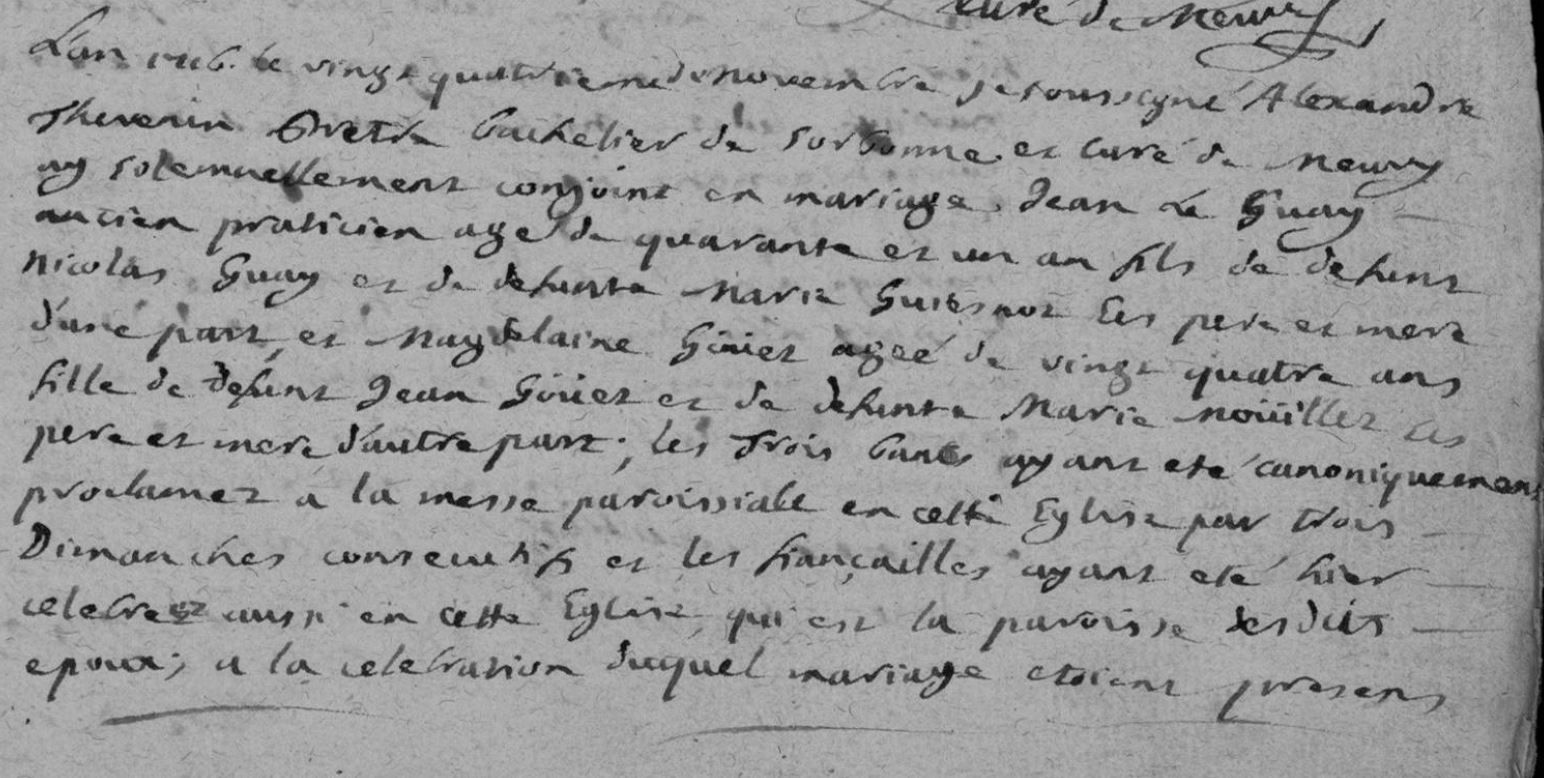 curé de Neuvy
L'an 1716. le vingt quatrieme de novembre je soussigné Alexandre
Thevenin Pretre bachelier de sorbonne et curé de Neuvy
ay solemnellement conjoint en mariage. Jean Le Guay
ancien praticien agé de quarante et un an fils de defunt
nicolas Guay et de defunte Marie les pere et mere
d'une part, et Magdelaine Goüiet ageé de vingt quatre ans
fille de defunt Jean Goüiet et de defunte Marie Noüillet les
pere et mere d'autre part; les trois bans ayant eté canoniquement
proclamez a la messe paroissiale en cette Eglise par trois
Dimanches consecutifs et les fiançailles ayant eté hier
celebreez aussi en cette Eglise qui est la paroisse desdits
epoux; a la celebration duquel mariage etoient presens